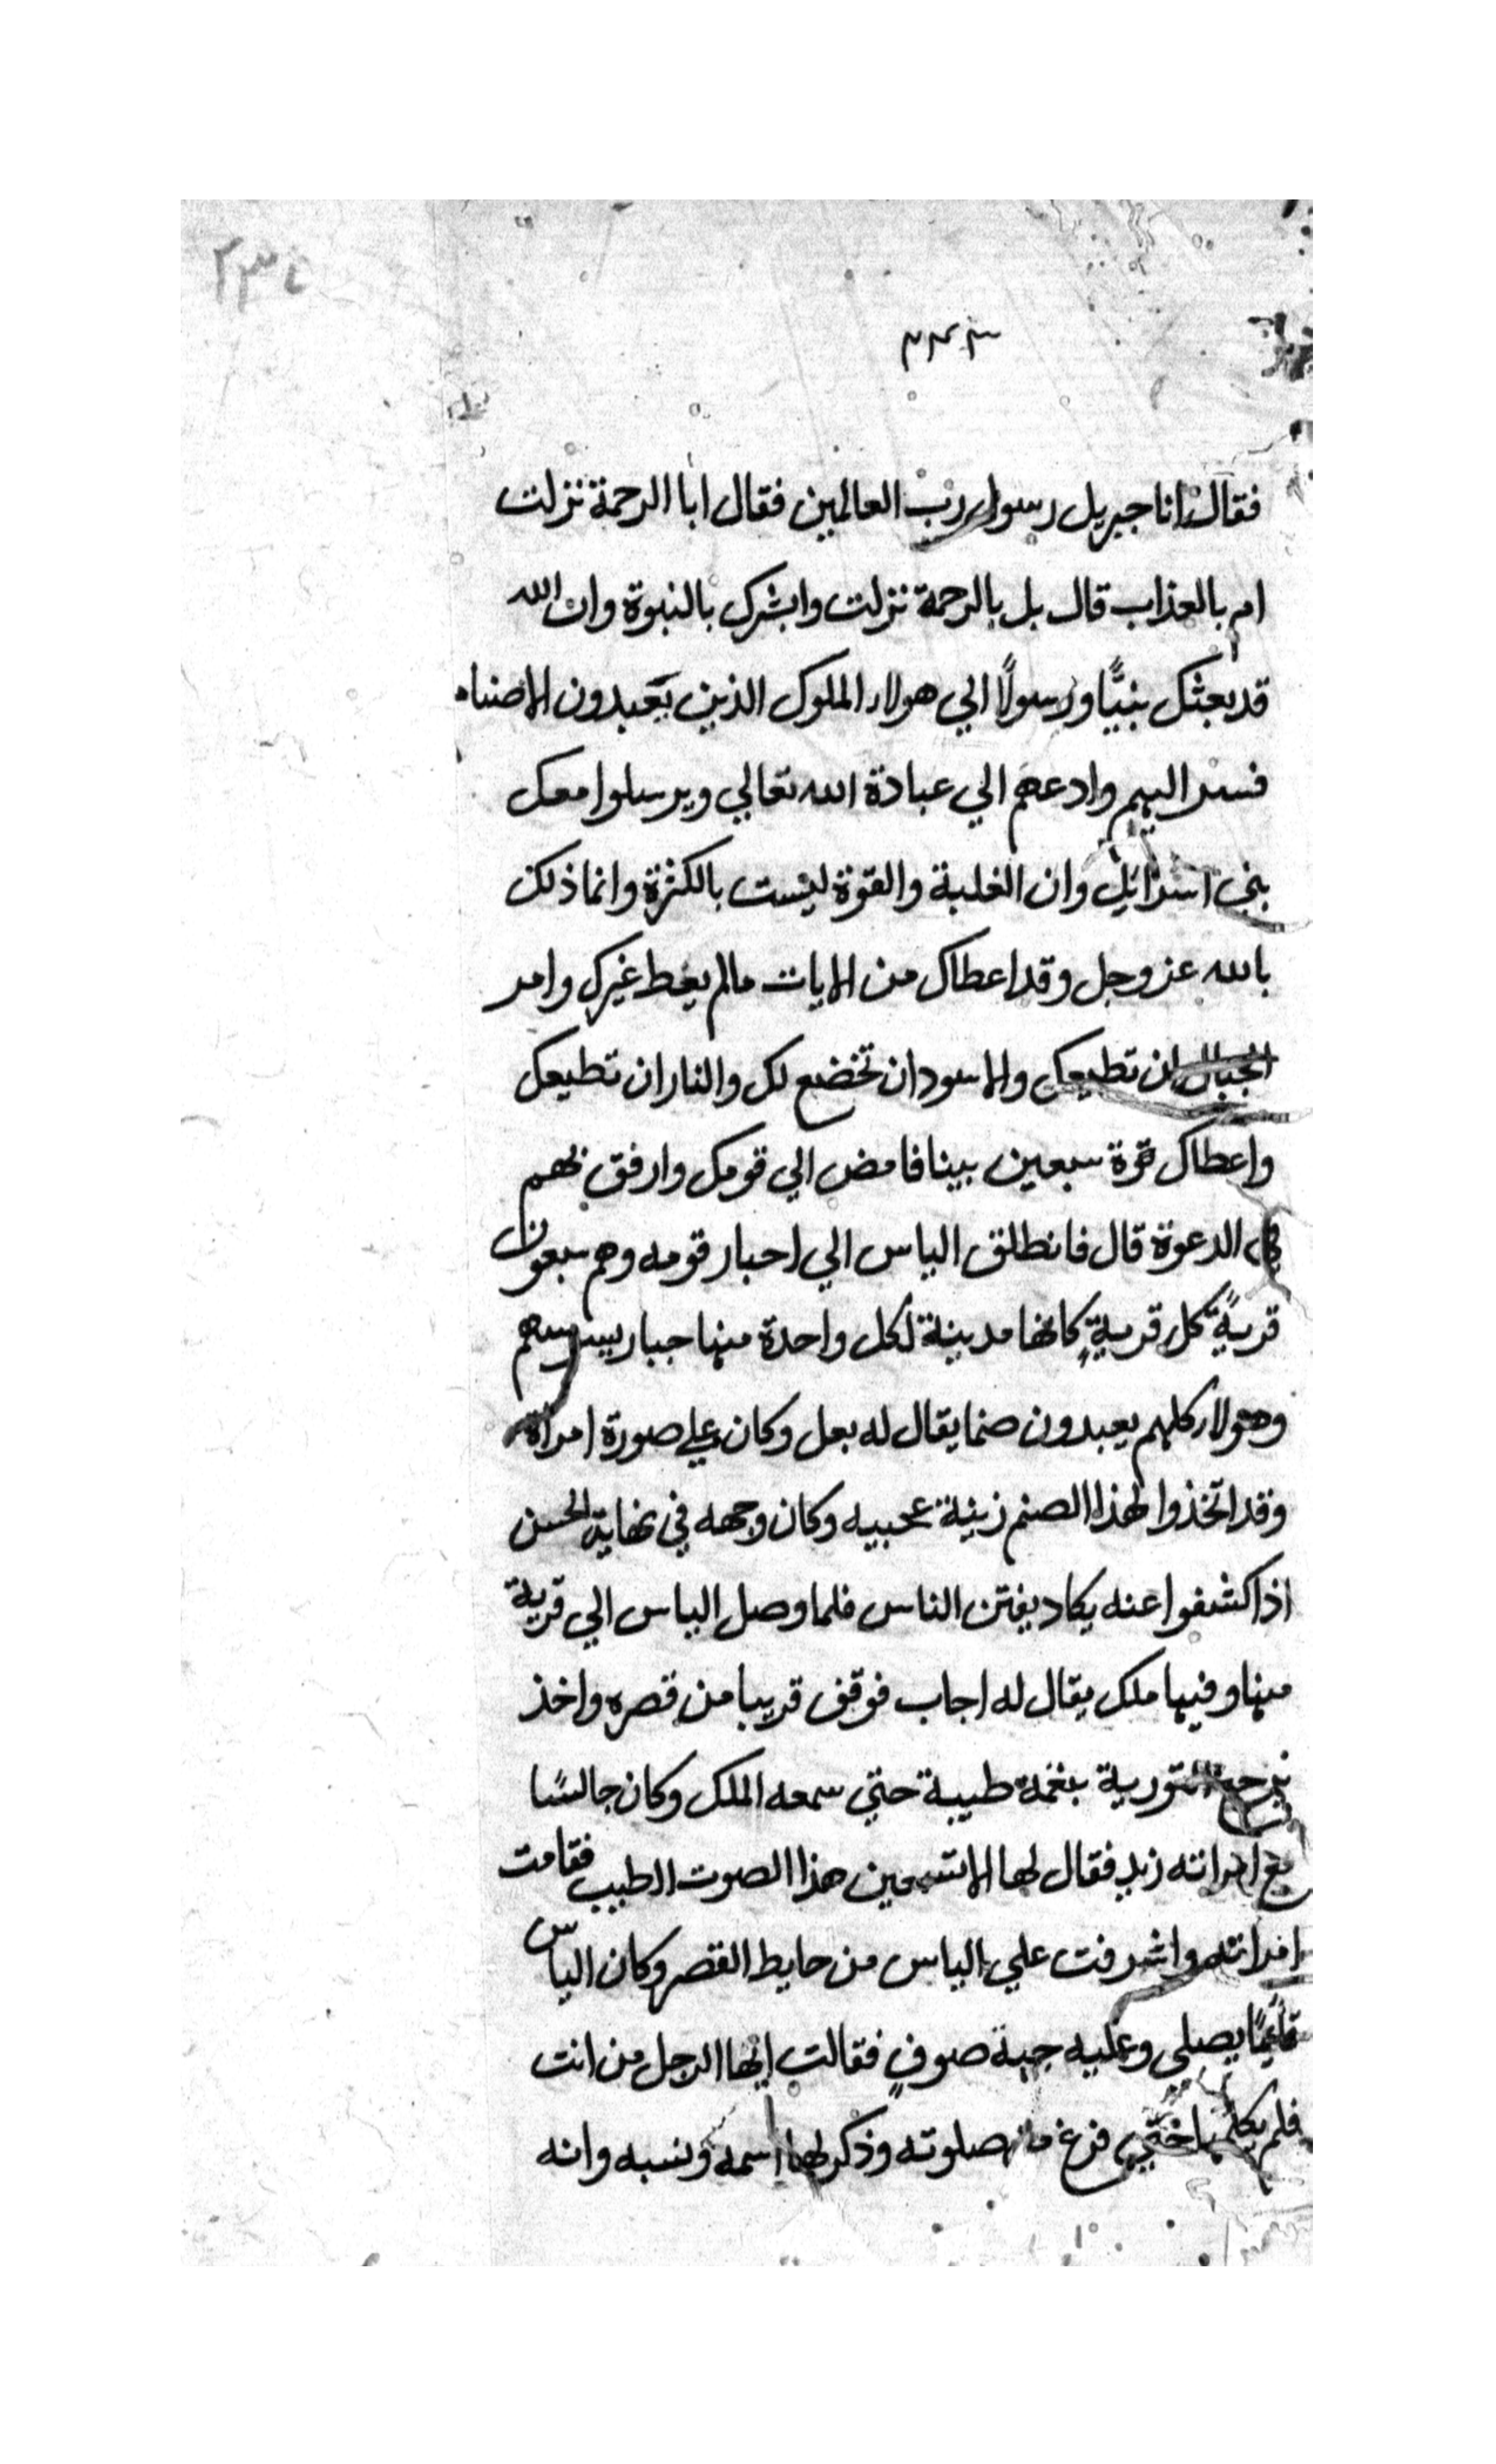 فقال انا جبريل رسول رب العالمين فقال ابا الرحمة نزلت
ام بالعذاب قال بل بالرحمة نزلت وابشرك بالنبوة وان الله
قد بعثك نبيًّا ورسولًا الي هولاء الملوك الذين يعبدون الاصنام
فسر اليهم وادعهم الي عبادة الله تعالي ويرسلوا معك
بني اسرائيل وان الغلبة والقوة ليست بالكثرة وانما ذلك
بالله عز وجل وقد اعطاك من الايات مالم يعط غيرك وامر
الجبال ان تطيعك والاسود ان تخضع لك والنار ان تطيعك
واعطاك قوة سبعين نبيا فامض الي قومك وارفق بهم
في الدعوة قال فانطلق الياس الي احبار قومه وهم سبعون
قريةً كل قريةٍ كانها مدينة لكل واحدة منها جبار يسوسهم
وهولاء كلهم يعبدون صنما يقال له بعل وكان علي صورة امراة
وقد اتخذوا لهذا الصنم زينة عجيبه وكان وجهه في نهاية الحسن
اذا كشفوا عنه يكاد يفتن الناس فلما وصل الياس الي قرية
منها وفيها ملك يقال له اجاب فوقف قريبا من قصره واخذ
التورية بنغمة طيبة حتي سمعه الملك وكان جالسًا
مع امراته زبد فقال لها الا تسمعين هذا الصوت الطيب فقامت
امراته واشرفت علي الياس من حايط القصر وكان الياس
قائمًا يصلي وعليه جبة صوفٍ فقالت ايها الرجل من انت
فلم يكلمها حتي فرغ من صلوته وذكر لها اسمه ونسبه وانه